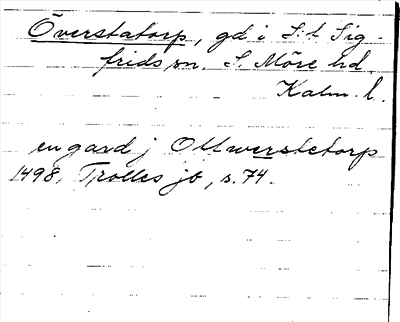 Överstatorp, gd i S:t Sig-
frids sn. S. Möre hd,
Kalm. l.
en gaard j Offwerstetorp
1498, Trolles jb, s. 74.